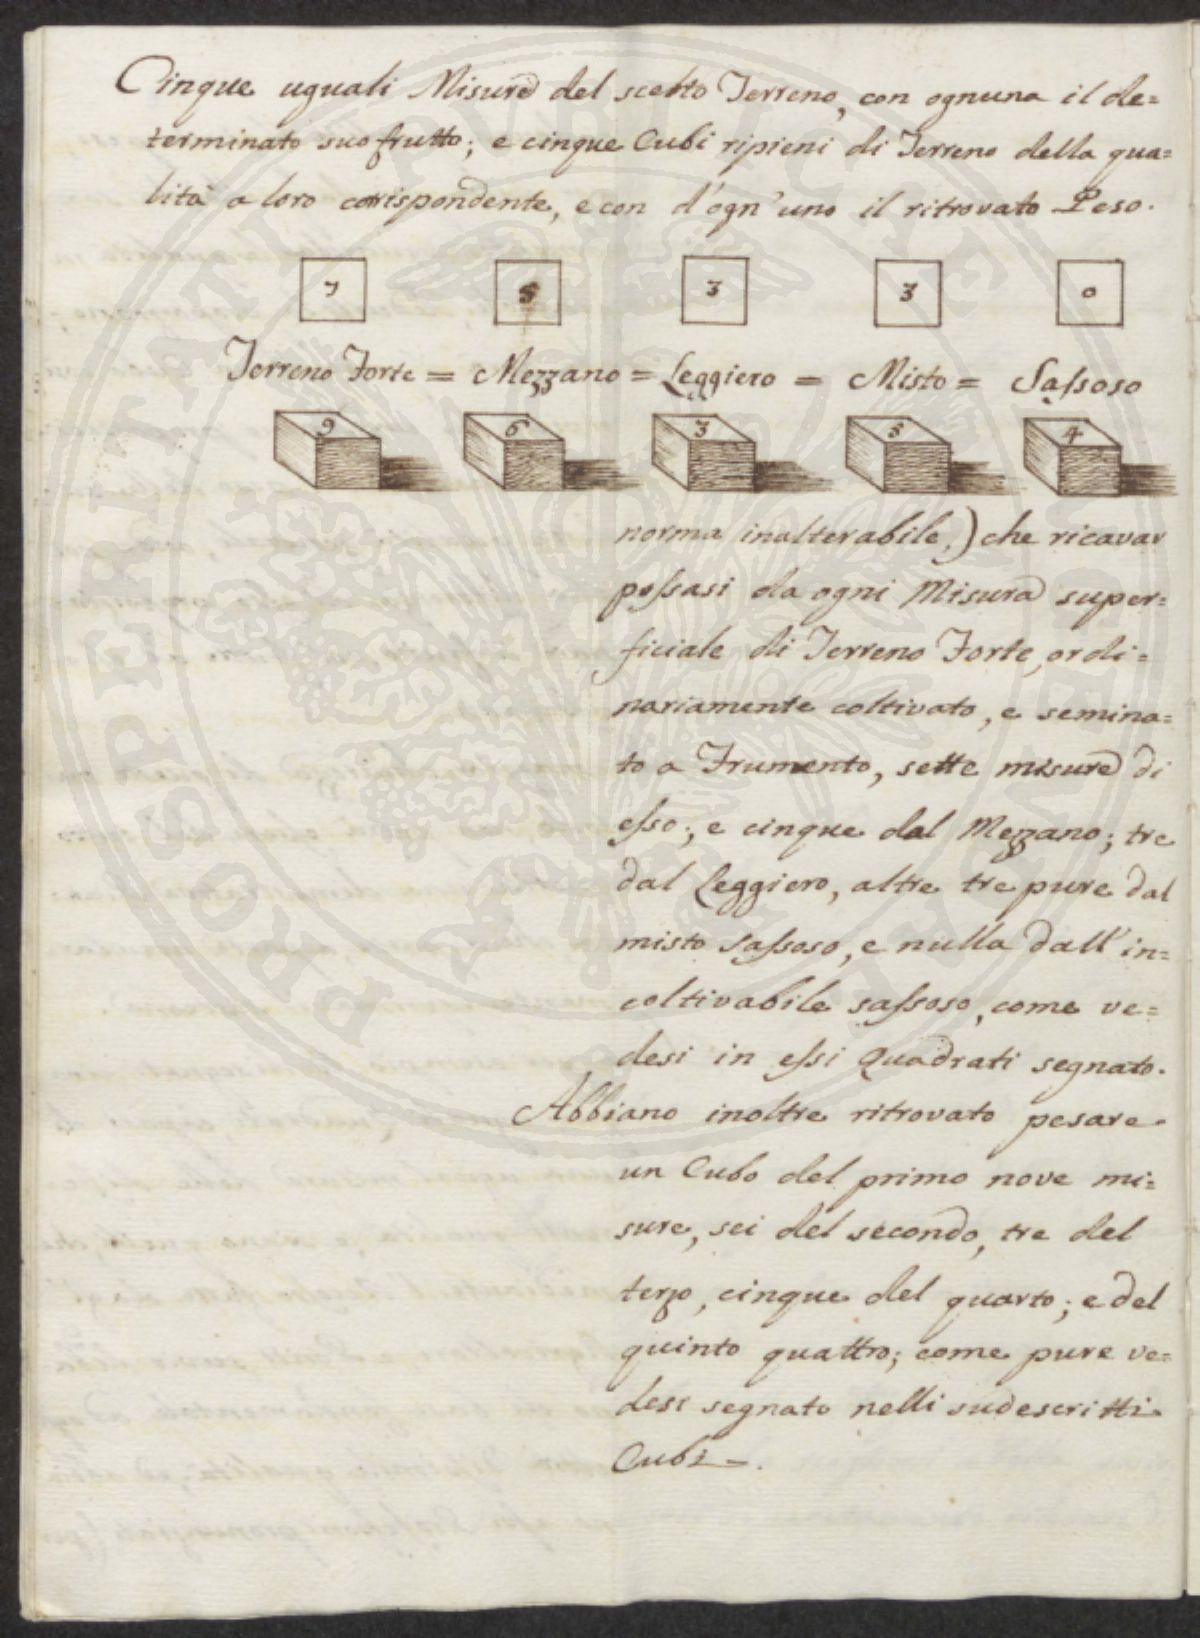 Cinque uguali Misure del scelto Terreno, con ognuna il de=
terminato suo frutto; e cinque Cubi ripieni di Terreno della qua=
lità a loro corrispondente, e con d'ogn'uno il ritrovato Peso.
7 5 3 3 0
Terreno Forte = Mezzano = Leggiero = Misto = Sassoso
9 6 3 5 4
norma inalterabile,) che ricavar
possasi da ogni Misura super=
ficiale di Terreno Forte, ordi=
nariamente coltivato, e semina=
to a Frumento, sette misure di
esso; e cinque dal Mezzano; tre
dal Leggiero, altre tre pure dal
misto sassoso, e nulla dall'in=
coltivabile sassoso, come ve=
desi in essi Quadrati segnato.
Abbiano inoltre ritrovato pesare
un Cubo del primo nove mi=
sure, sei del secondo, tre del
terzo, cinque del quarto; e del
quinto quattro; come pure ve=
desi segnato nelli sudescritti
Cubi.
PROSPERITATI PVBLICAE